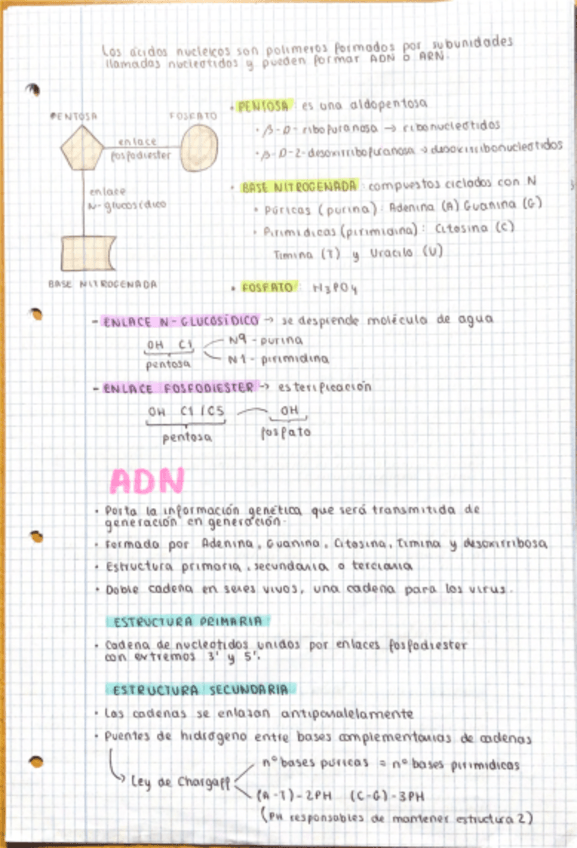 Los ácidos nucleicos son polímeros formados por subunidades
llamadas nucleotidos y pueden formar ADN o ARN.
PENTOSA
FOSFATO
enlace
fosfodiester
enlace
N-glucosídico
BASE NITROGENADA
• PENTOSA: es una aldopentosa
• β-D-ribofuranosa → ribonucleotidos
• β-D-2-desoxirribofuranosa → desoxirribonucleotidos
• BASE NITROGENADA: compuestos ciclados con N
• Púricas (purina): Adenina (A) Guanina (G)
• Pirimidicas (pirimidina): Citosina (C)
Timina (T) y Uracilo (U)
• FOSFATO: H3PO4
- ENLACE N-GLUCOSÍDICO → se desprende molécula de agua
OH C1 N9 - purina
pentosa N1 - pirimidina
- ENLACE FOSFODIESTER → esterificación
OH C1 / C5 OH
pentosa fosfato
ADN
• Porta la información genética que será transmitida de
generación en generación.
• Formado por Adenina, Guanina, Citosina, Timina y desoxirribosa
• Estructura primaria, secundaria o terciaria
• Doble cadena en seres vivos, una cadena para los virus.
ESTRUCTURA PRIMARIA
• Cadena de nucleotidos unidos por enlaces fosfodiester
con extremos 3' y 5'.
ESTRUCTURA SECUNDARIA
• Las cadenas se enlazan antiparalelamente
• Puentes de hidrógeno entre bases complementarias de cadenas
nº bases púricas = nº bases pirimidicas
Ley de Chargaff
(A-T)-2PH (C-G)-3PH
(PH responsables de mantener estructura 2)